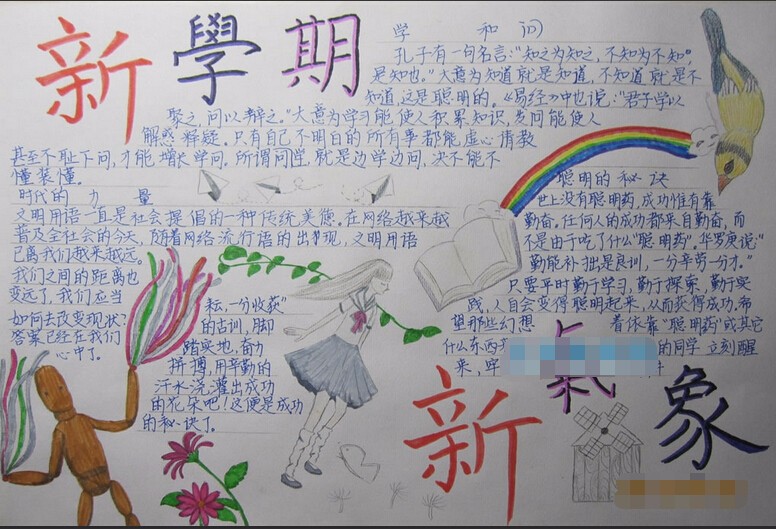 新學期
学 和 问
孔子有一句名言:"知之为知之,不知为不知,
是知也。"大意为知道就是知道,不知道就是不
知道,这是聪明的。《易经》中也说:"君子学以
聚之,问以辩之。"大意为学习能使人积累知识,发问能使人
解惑释疑。只有自己不明白的所有事都能虚心请教
甚至不耻下问,才能增长学问。所谓问学,就是边学边问,决不能不
懂装懂。
时代的 力 量
文明用语一直是社会提倡的一种传统美德。在网络越来越
普及全社会的今天,随着网络流行语的出现,文明用语
已离我们越来越远
我们之间的距离也
变远了,我们应当
如何去改变现状?
答案已经在我们
心中了。
聪明的秘诀
世上没有聪明药,成功惟有靠
勤奋。任何人的成功都来自勤奋,而
不是由于吃了什么"聪明药"。华罗庚说:"
勤能补拙是良训,一分辛劳一分才。"
只要平时勤于学习,勤于探索,勤于实
践,人自会变得聪明起来,从而获得成功。
望那些幻想 着依靠"聪明药"或其它
什么东西 的同学 立刻醒
来,牢
耘,一分收获"
的古训,脚
踏实地,奋力
拼搏,用辛勤的
汗水浇灌出成功
的花朵吧!这便是成功
的秘诀了。
新氣象